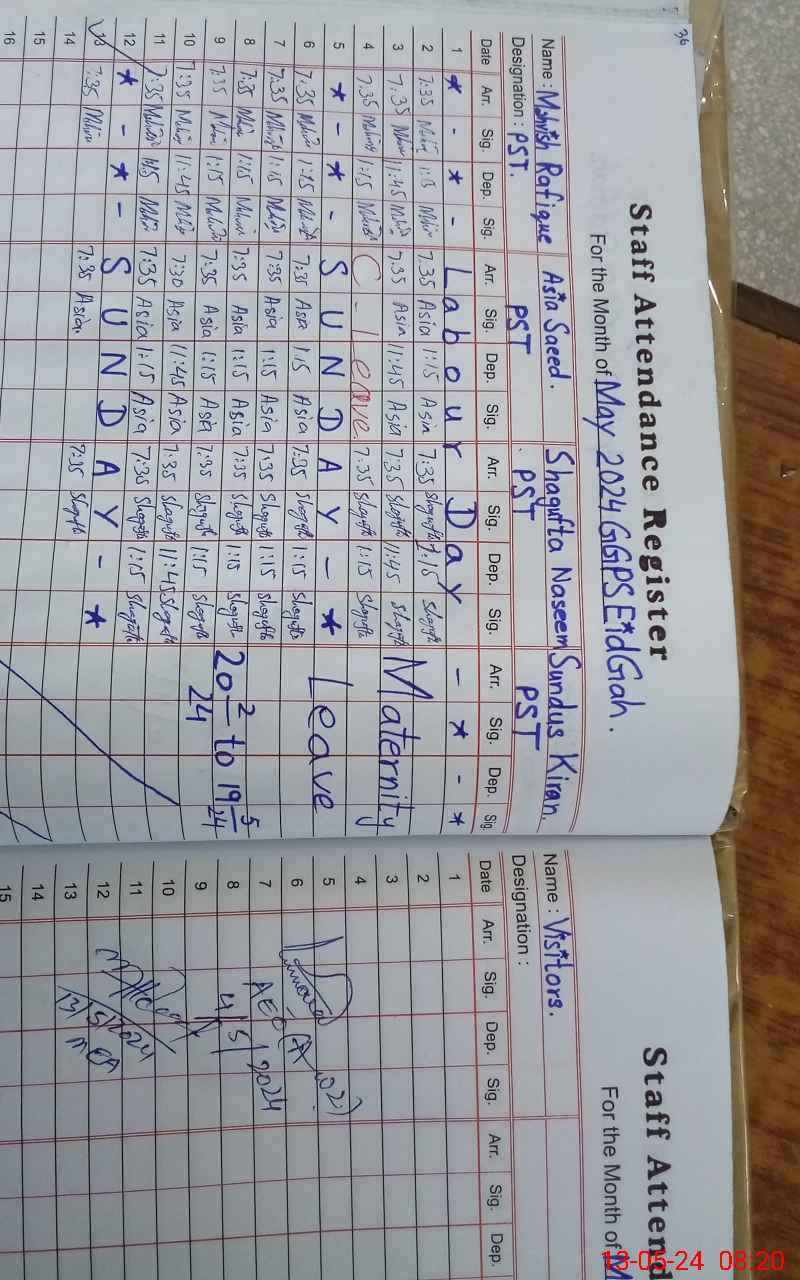 36
Staff Attendance Register
For the Month of May 2024 GGPS Eid Gah.
Name : Mehwish Rafique Asia Saeed. Shagufta Naseem Sundus Kiran.
Designation : PST. PST PST PST
Date Arr. Sig. Dep. Sig. Arr. Sig. Dep. Sig. Arr. Sig. Dep. Sig. Arr. Sig. Dep. Sig.
1 * - * - Labour Day - * - *
2 7:35 1:15 7:35 Asia 1:15 Asia 7:35 Shagufta 1:15 Shagufta
3 7:35 11:45 7:35 Asia 11:45 Asia 7:35 Shagufta 11:45 Shagufta Maternity
4 7:35 1:15 C - Leave. 7:35 Shagufta 1:15 Shagufta
5 * - * - SUNDAY - * Leave
6 7:35 1:15 7:35 Asia 1:15 Asia 7:35 Shagufta 1:15 Shagufta
7 7:35 1:15 7:35 Asia 1:15 Asia 7:35 Shagufta 1:15 Shagufta
8 7:35 1:15 7:35 Asia 1:15 Asia 7:35 Shagufta 1:15 Shagufta 20 2/24 to 19 5/24
9 7:35 1:15 7:35 Asia 1:15 Asia 7:35 Shagufta 1:15 Shagufta
10 7:35 11:45 7:30 Asia 11:45 Asia 7:35 Shagufta 11:45 Shagufta
11 7:35 1:15 7:35 Asia 1:15 Asia 7:35 Shagufta 1:15 Shagufta
12 * - * - SUNDAY - *
13 7:35 7:35 Asia 7:35 Shagufta
14
15
16
Staff Attend
For the Month of M
Name : Visitors.
Designation :
Date Arr. Sig. Dep. Sig. Arr. Sig. Dep.
1
2
3
4
5
6
7 AEO
8 4/5/2024
9
10
11
12
13 13/5/2024 MEA
14
15
13-05-24 08:20